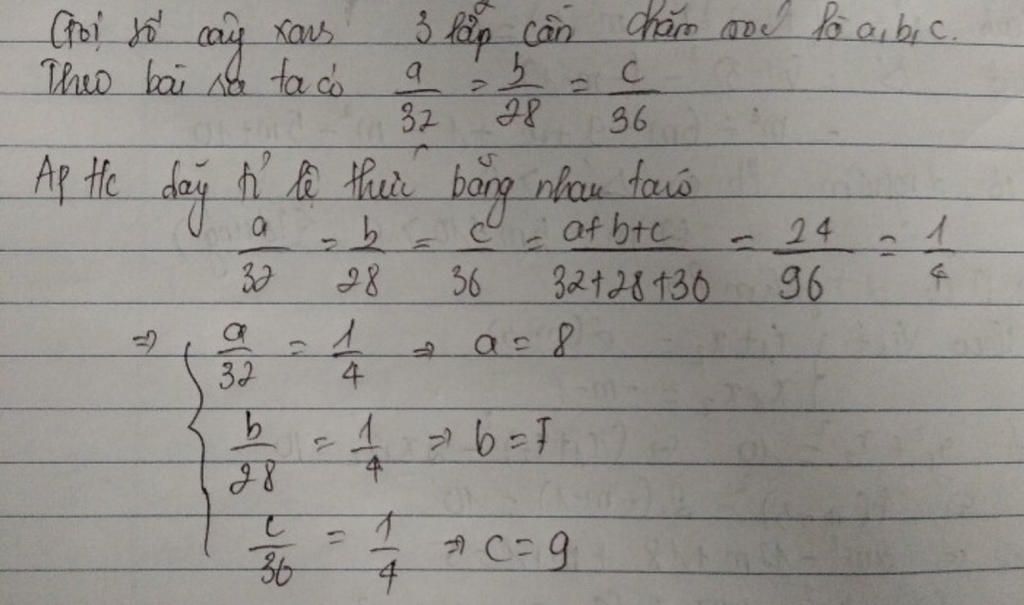 Gọi số cây xanh 3 lớp cần chăm sóc là a, b, c.
Theo bài ra ta có a/32 = b/28 = c/36
Ap t/c dãy tỉ lệ thức bằng nhau ta có
a/32 = b/28 = c/36 = a+b+c/32+28+36 = 24/96 = 1/4
=> { a/32 = 1/4 => a = 8
b/28 = 1/4 => b = 7
c/36 = 1/4 => c = 9